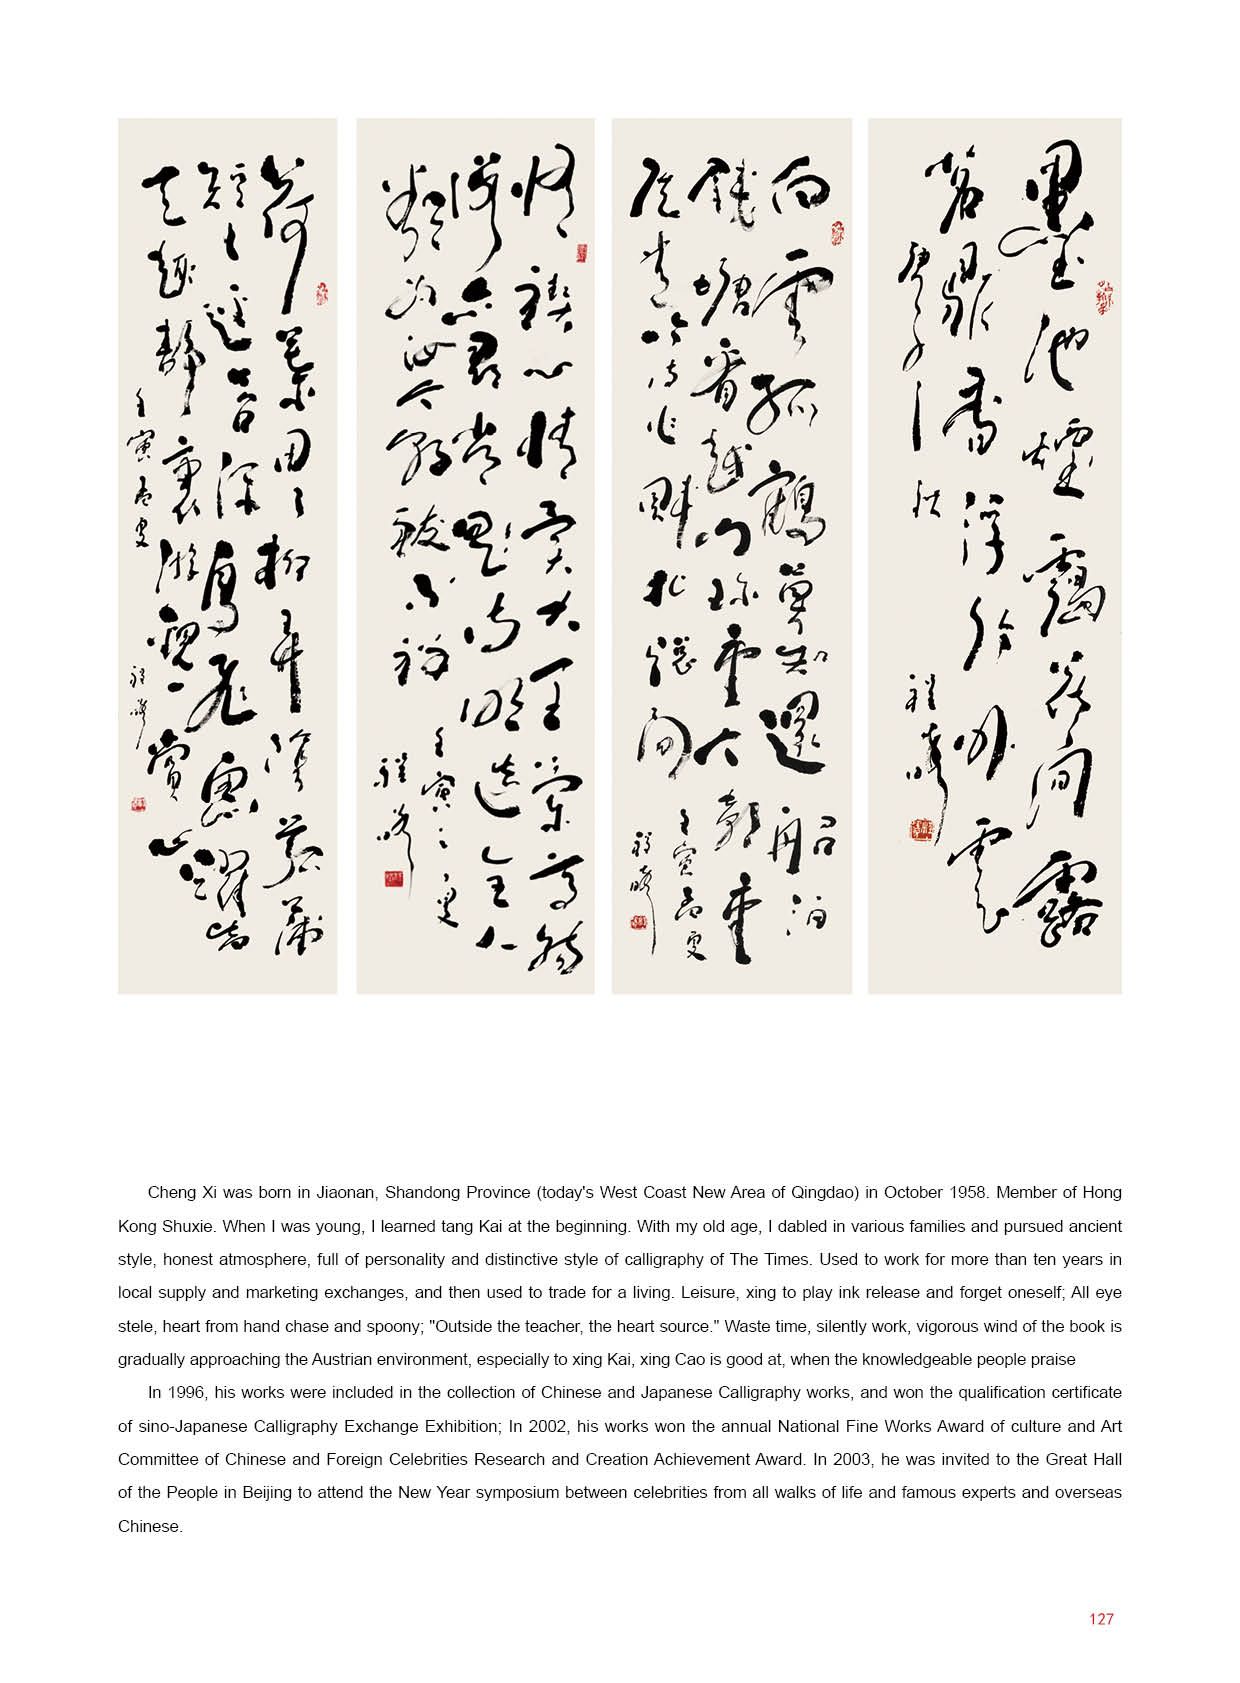 墨池煙靄花間露
茗鼎香浮竹外雲
程晞
白雲孤鶴暮知還船泊
錢塘看越山珍重大
壬寅孟夏
程晞
修禊心情大王蘭亭
壬寅之夏
程晞
荷葉田田柳弄陰菰蒲
短短逕苔深鳥飛魚躍皆
天趣靜裏游觀一賞心
壬寅孟夏
程晞
Cheng Xi was born in Jiaonan, Shandong Province (today's West Coast New Area of Qingdao) in October 1958. Member of Hong
Kong Shuxie. When I was young, I learned tang Kai at the beginning. With my old age, I dabled in various families and pursued ancient
style, honest atmosphere, full of personality and distinctive style of calligraphy of The Times. Used to work for more than ten years in
local supply and marketing exchanges, and then used to trade for a living. Leisure, xing to play ink release and forget oneself; All eye
stele, heart from hand chase and spoony; "Outside the teacher, the heart source." Waste time, silently work, vigorous wind of the book is
gradually approaching the Austrian environment, especially to xing Kai, xing Cao is good at, when the knowledgeable people praise
In 1996, his works were included in the collection of Chinese and Japanese Calligraphy works, and won the qualification certificate
of sino-Japanese Calligraphy Exchange Exhibition; In 2002, his works won the annual National Fine Works Award of culture and Art
Committee of Chinese and Foreign Celebrities Research and Creation Achievement Award. In 2003, he was invited to the Great Hall
of the People in Beijing to attend the New Year symposium between celebrities from all walks of life and famous experts and overseas
Chinese.
127